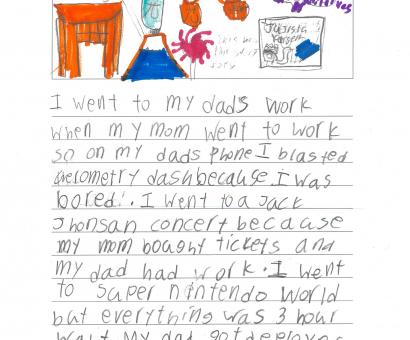 I went to my dads work
when my mom went to work
so on my dads phone I blasted
geelometry dash because I was
bored! . I went to a Jack
Jhonsan concert because
my mom bought tickets and
my dad had work . I went
to super nintendo world
but everything was 3 hour
wait My dad got deployed